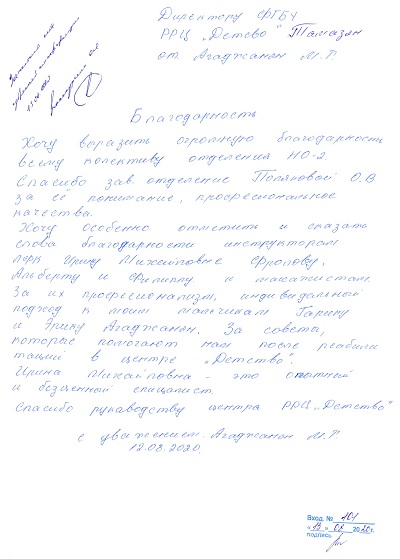 Директору ФГБУ
РРЦ „Детство" Тамазян
от Агаджанян М.Г.
Благодарность
Хочу выразить огромную благодарность
всему колективу отделения НО-2.
Спасибо зав. отделение Поляковой О.В
за её понимание, професиональное
качества.
Хочу особенно отметить и сказать
слова благодарности инструкторам
ЛФК Ирину Михайловне Фролову,
Альберту и Филиппу и масажистам.
За их професионализм, индивидальной
подход к моим мальчикам Гарику
и Эрику Агаджанян. За совета,
которые помогают нам после реабили
таций в центре „Детство".
Ирина Михайловна - это опытный
и безценный специалист.
Спасибо руководству центра РРЦ „Детство"
с уважением. Агаджанян М.Г.
12.08.2020.
Вход. № 101
« 13 » 08 2020г.
подпись